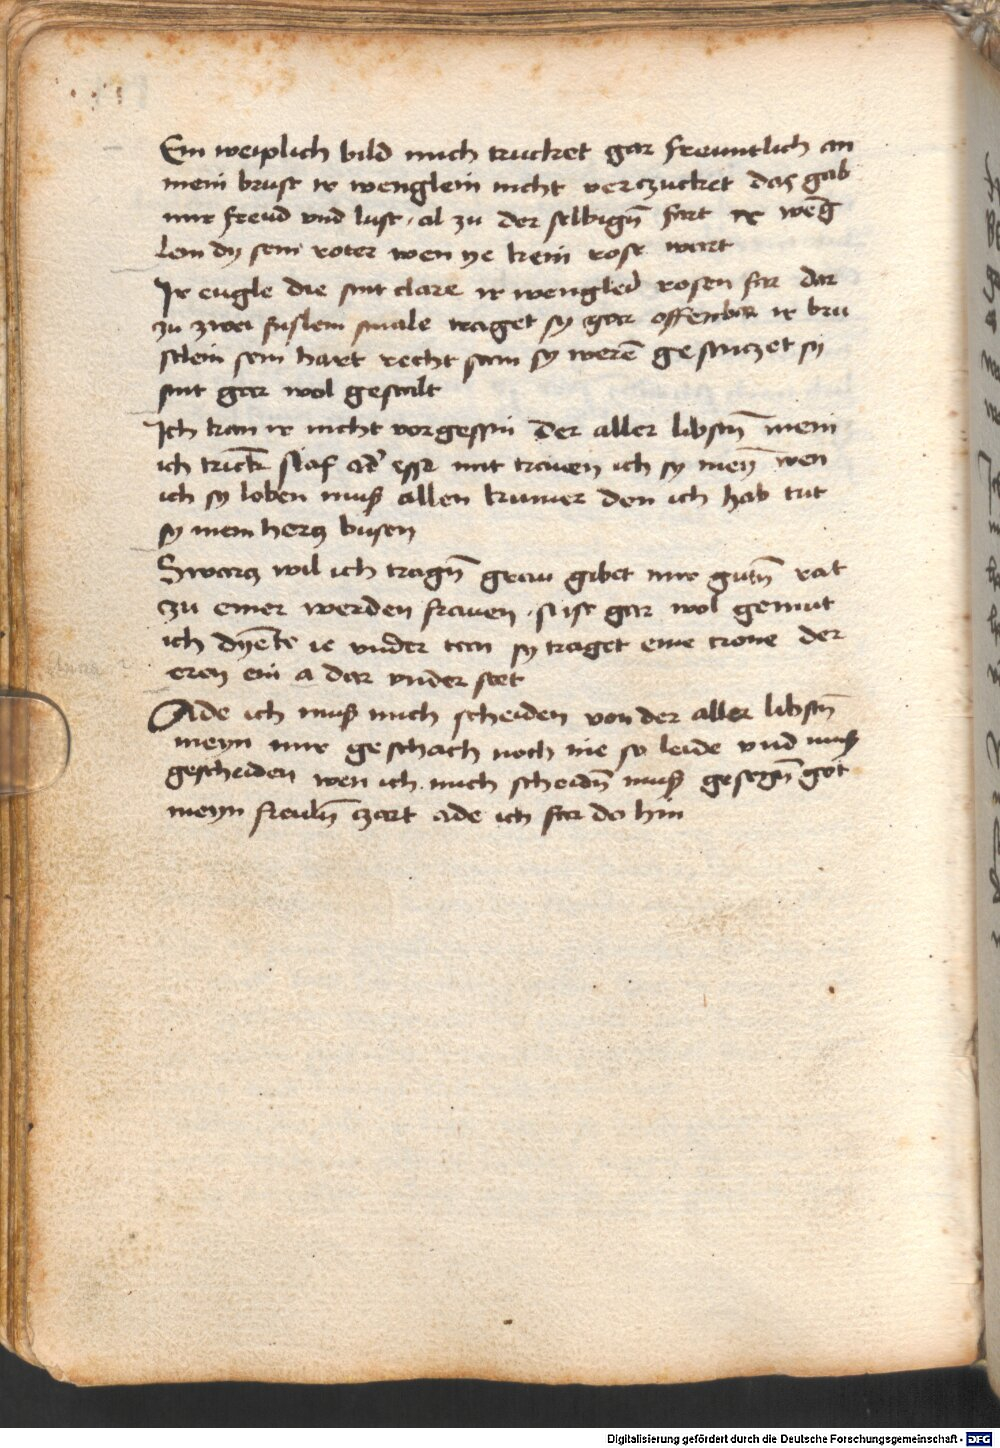 Ein weiplich bild mich trucket gar freuntlich an
mein brust ir wenglein nicht verczucket das gab
mir freud vnd lust, al zu der selbigñ fart ir weg̃
lein dy sein roter wen ye kein rose wart
Ir eugle die sint clare ir wenglei rosen far dar
zu zwei fuslein smale traget sy gar offenbar ir bru
stlein sein hart recht sam sy werẽ gestuczet sy
sint gar wol gestalt
Ich kan ir nicht vorgessin der aller libstñ mein
ich trick slaf ad' esse mit trawen ich sy meyñ wen
ich sy loben muß allen kumer den ich hab tut
sy mein hercz busen
Swarcz wil ich tragñ graw gibet mir gutñ rat
zu einer werden frawen, si ist gar wol gemut
ich dyẽte ir vnder tan sy traget eine crone der
eren ein a dar vnder stet
Ade ich muß mich scheiden von der aller libstñ
meyn mir geschach noch nie so leide vnd muß
gescheiden wen ich mich scheidñ muß gesegñ got
meyn freulñ czart ade ich far do hin
Digitalisierung gefördert durch die Deutsche Forschungsgemeinschaft - DFG